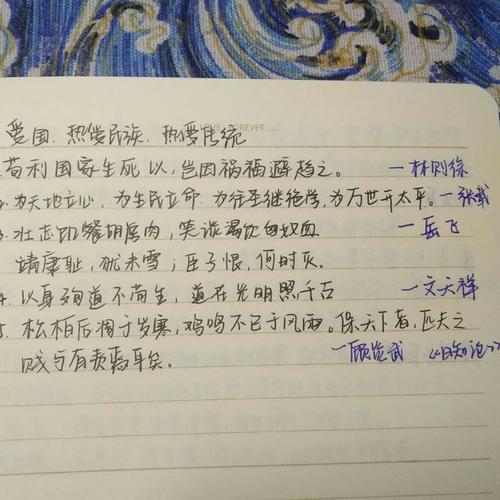 LOVE FOREVER...
爱国、热爱民族、热爱传统
苟利国家生死以,岂因祸福避趋之。 —林则徐
2.为天地立心,为生民立命,为往圣继绝学,为万世开太平。—张载
3.壮志饥餐胡虏肉,笑谈渴饮匈奴血 —岳飞
靖康耻,犹未雪;臣子恨,何时灭。
4.以身殉道不苟生,道在光明照千古 —文天祥
5.松柏后凋于岁寒,鸡鸣不已于风雨。保天下者,匹夫之
贱与有责焉耳矣。 —顾炎武 《日知记》